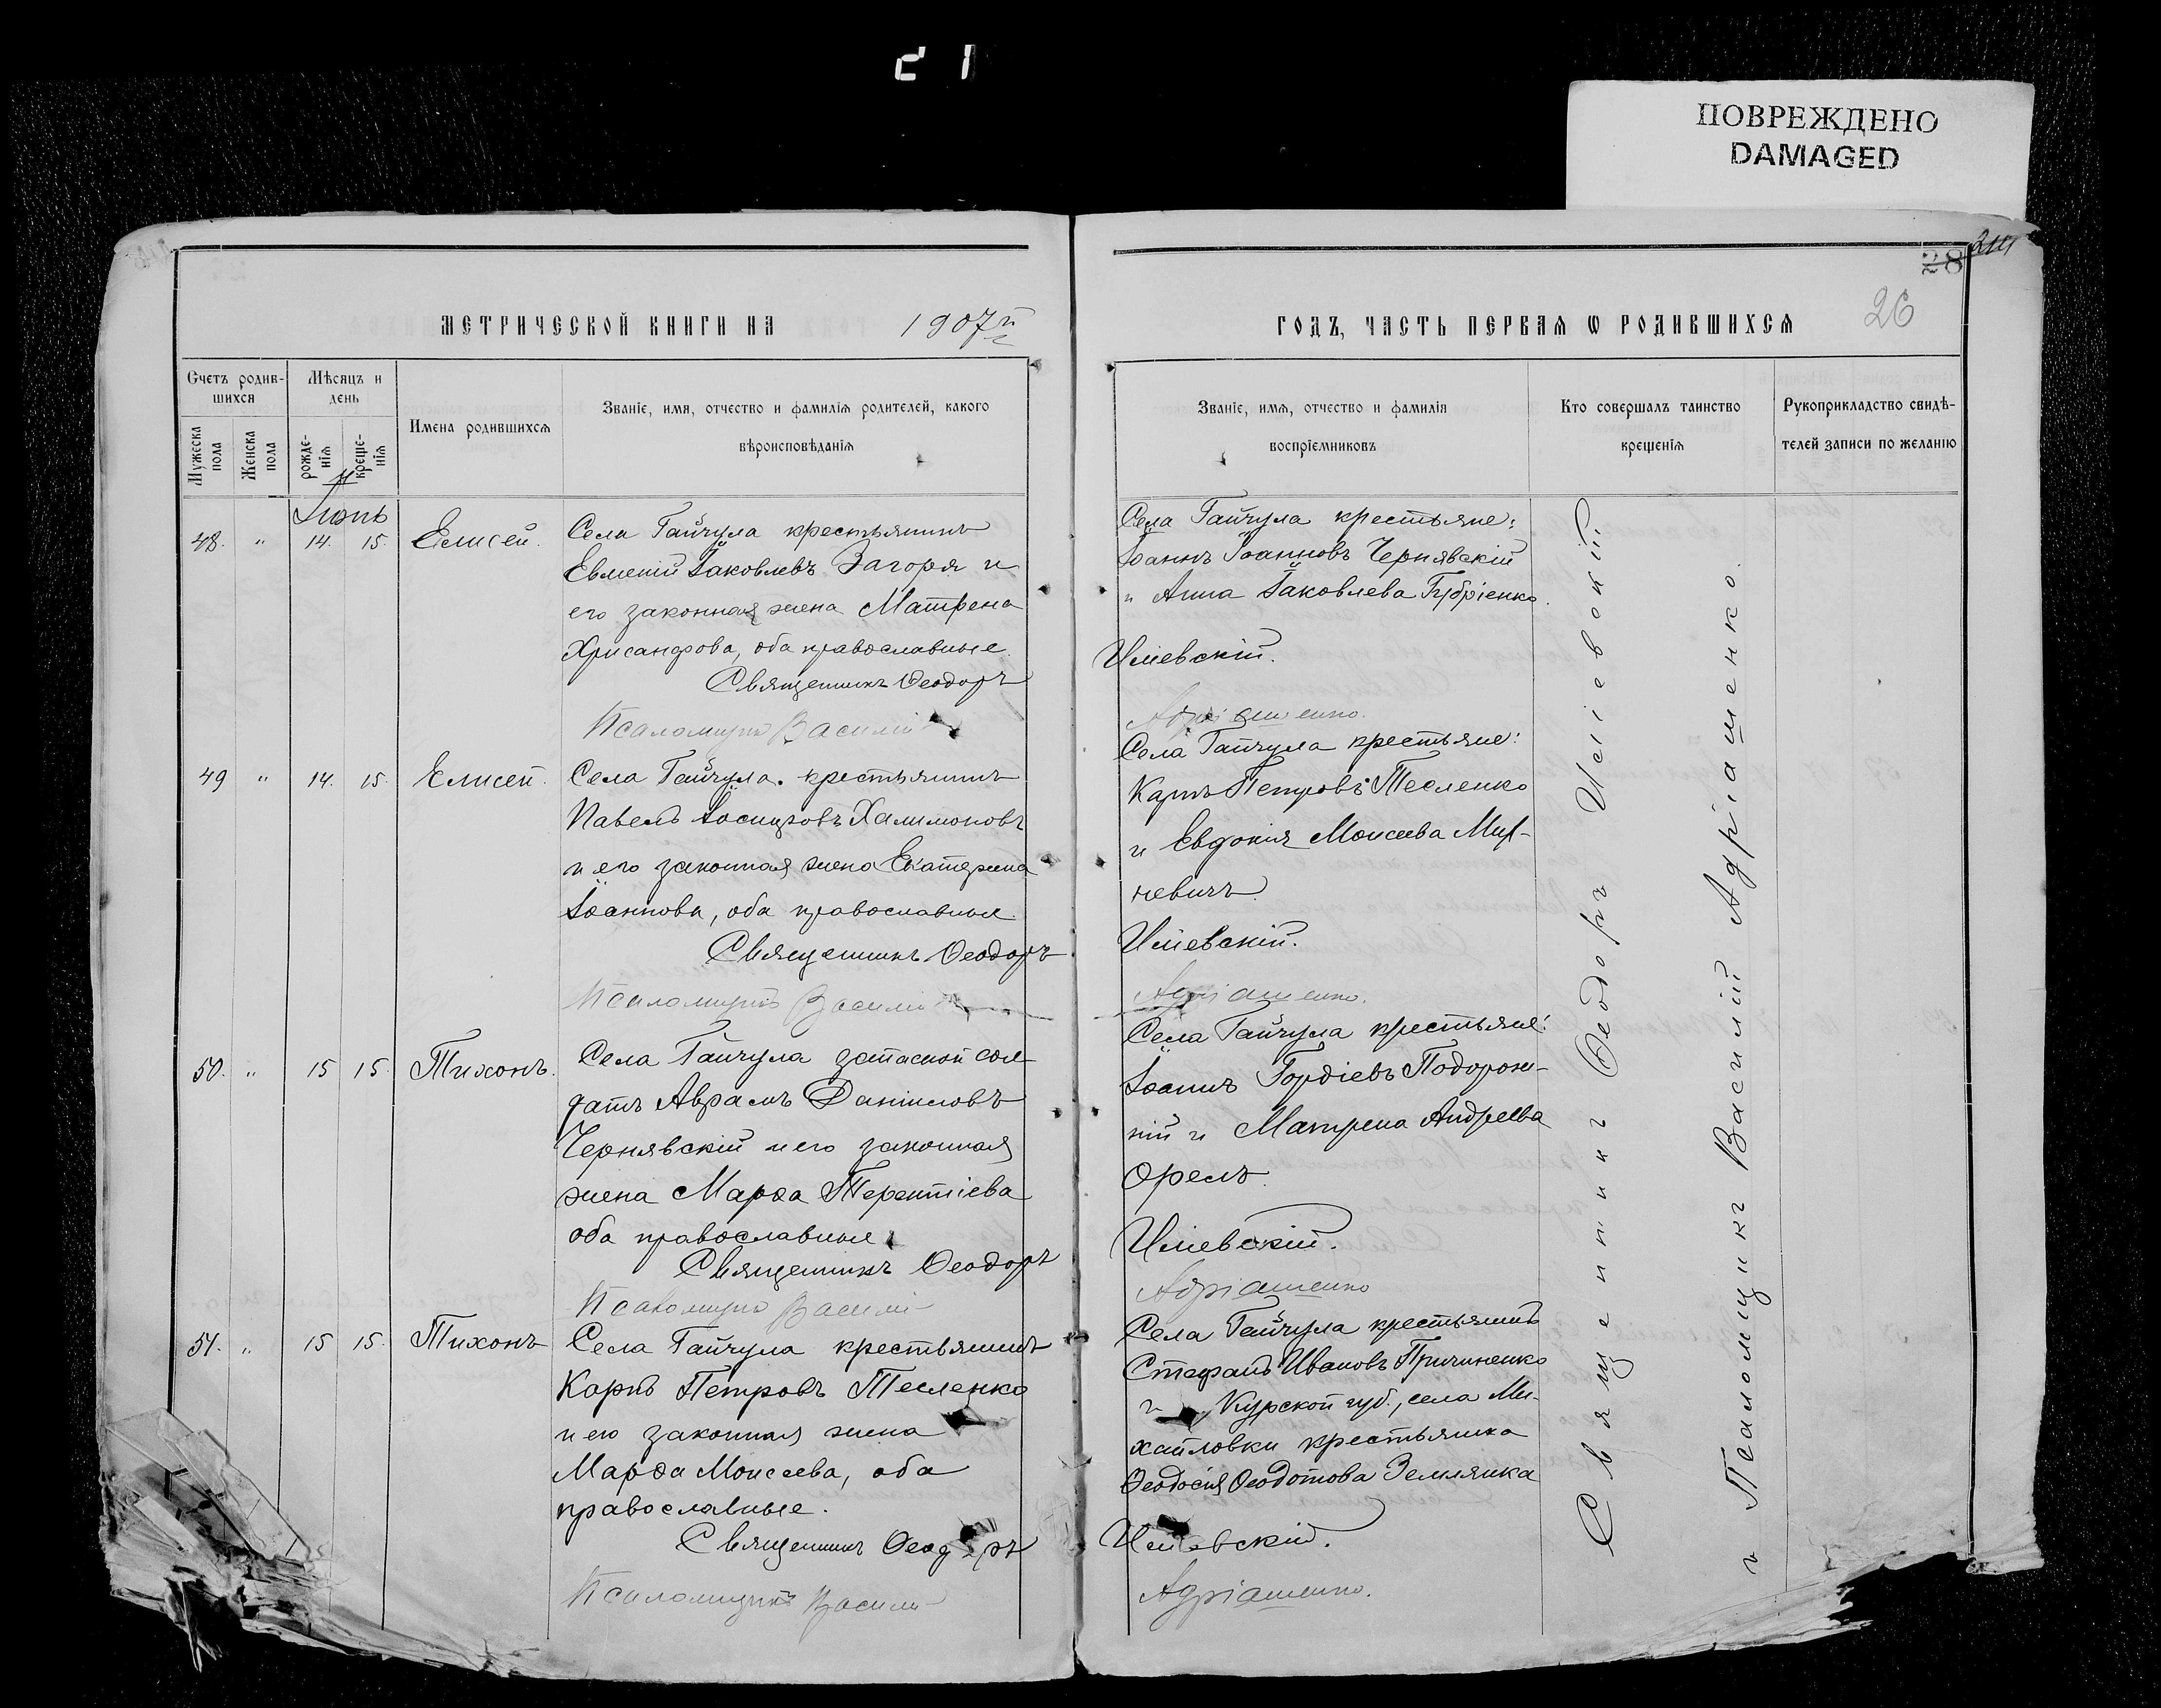 21
ПОВРЕЖДЕНО
DAMAGED
28
26
МЕТРИЧЕСКОЙ КНИГИ НА 1907й
ГОДЪ, ЧАСТЬ ПЕРВАЯ Ѡ РОДИВШИХСЯ
Счетъ родив-
шихся
Мужеска пола
Женска пола
Мѣсяцъ и
день
рожде-
нія
креще-
нія
Имена родившихся
Званіе, имя, отчество и фамилія родителей, какого
вѣроисповѣданія
Званіе, имя, отчество и фамилія
воспріемниковъ
Кто совершалъ таинство
крещенія
Рукоприкладство свидѣ-
телей записи по желанію
Іюнь
48. " 14. 15. Елисей.
Села Гайчула крестьянинъ
Евмений Іаковлевъ Загоря и
его законная жена Матрена
Хрисанфова, оба православные.
Священникъ Ѳеодоръ
Псаломщикъ Василій
Села Гайчула крестьяне:
Іоаннъ Іоанновъ Чернявскій
и Анна Іаковлева Губріенко.
Илієвскій.
Адріашенко.
49 " 14. 15. Елисей.
Села Гайчула. крестьянинъ
Павелъ Іосифовъ Халимоновъ
и его законная жена Екатерина
Іоаннова, оба православные.
Священникъ Ѳеодоръ
Псаломщикъ Василій
Села Гайчула крестьяне:
Карпъ Петровъ Тесленко
и Евдокія Моисеева Мих-
невичъ.
Илієвскій.
Адріашенко.
50. " 15 15 Тихонъ.
Села Гайчула запасной сол-
датъ Аврамъ Даниловъ
Чернявскій и его законная
жена Марѳа Терентіева
оба православные
Священникъ Ѳеодоръ
Псаломщикъ Василій
Села Гайчула крестьяне:
Іоаннъ Гордіевъ Подорож-
ній и Матрена Андреева
Орелъ.
Илієвскій.
Адріашенко
51. " 15 15. Тихонъ
Села Гайчула крестьянинъ
Карпъ Петровъ Тесленко
и его законная жена
Марѳа Моисеева, оба
православные.
Священникъ Ѳеодоръ
Псаломщикъ Василій
Села Гайчула крестьянинъ
Стефанъ Ивановъ Причиненко
и Курской губ., села Ми-
хайловки крестьянка
Ѳеодосія Ѳеодотова Землянка
Илієвскій.
Адріашенко.
Священникъ Ѳеодоръ Илієвскій
и Псаломщикъ Василій Адріашенко.